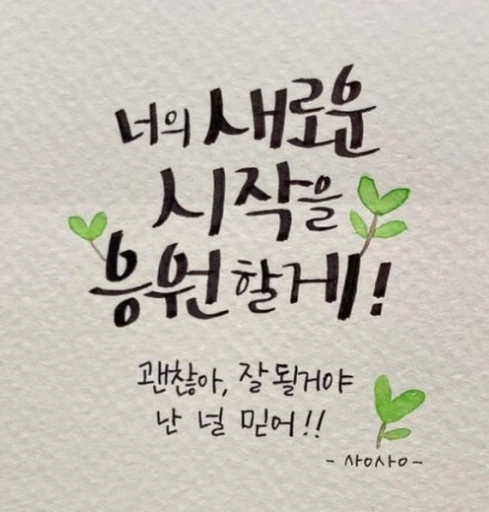 너의 새로운
시작을
응원할게!
괜찮아, 잘 될거야
난 널 믿어!!
- 사이사이 -